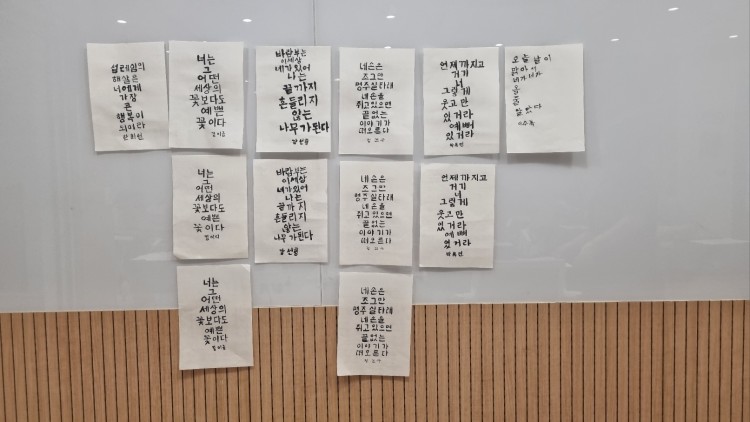 설레임의
해살은
너에게
가장
큰
행복이
되리라
너는
그
어떤
세상의
꽃보다도
예쁜
꽃이다
바람부는
이세상
네가있어
나는
끝까지
흔들리지
않는
나무가된다
네손은
조그만
명주실타래
네손을
쥐고있으면
끝없는
이야기가
떠오른다
언제까지고
거기
너
그렇게
웃고만
있거라
예뻐
있거라
오늘 날이
맑아서
네가
올
줄
알았다
너는
그
어떤
세상의
꽃보다도
예쁜
꽃이다
바람부는
이세상
네가있어
나는
끝까지
흔들리지
않는
나무가된다
네손은
조그만
명주실타래
네손을
쥐고있으면
끝없는
이야기가
떠오른다
언제까지고
거기
너
그렇게
웃고만
있거라
예뻐
있거라
너는
그
어떤
세상의
꽃보다도
예쁜
꽃이다
네손은
조그만
명주실타래
네손을
쥐고있으면
끝없는
이야기가
떠오른다